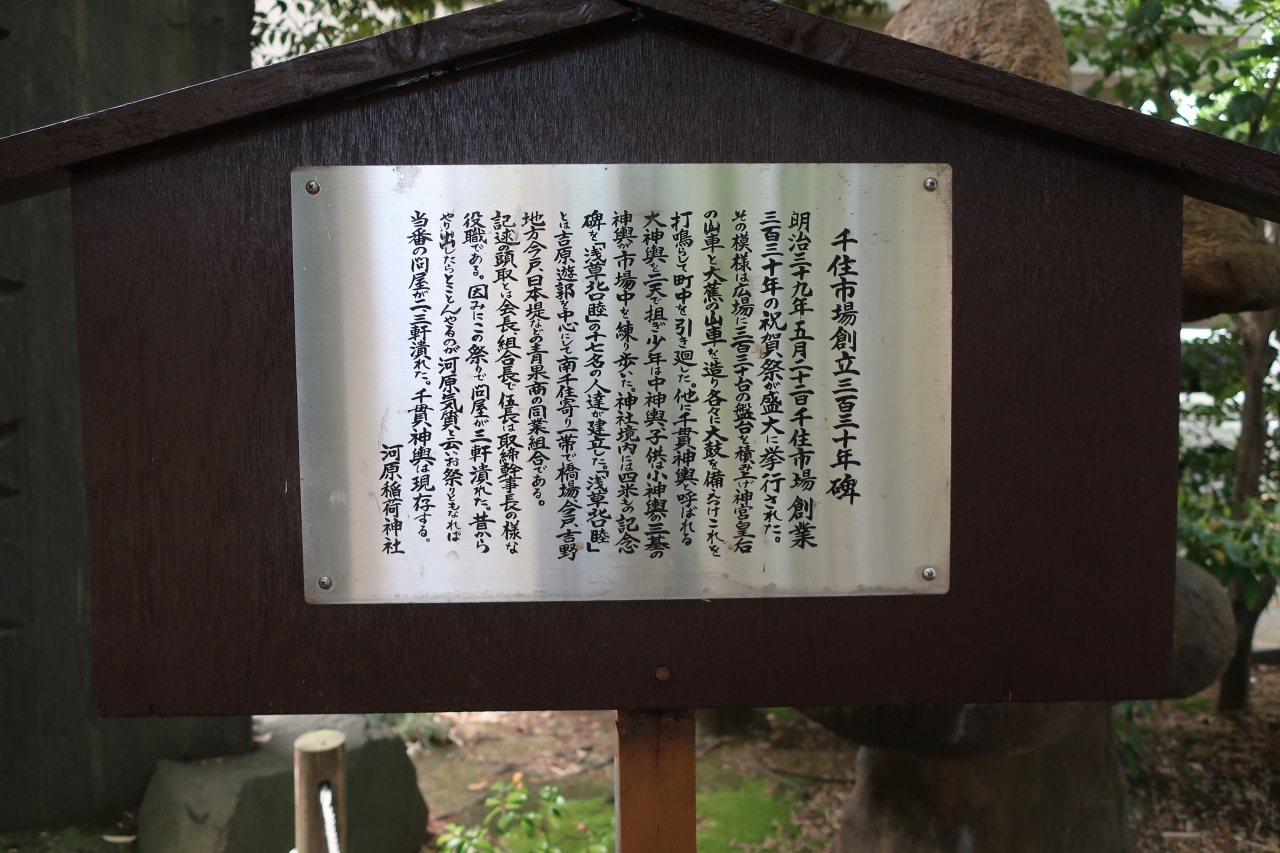 千住市場創立三百三十年碑
明治三十九年五月二十二日千住市場創業
三百三十年の祝賀祭が盛大に挙行された。
その模様は広場に三百三十台の盤台を積み上げ神宮皇后
の山車と大蕉の山車を造り各々に大鼓を備へつけこれを
打鳴らして町中を引き廻した。他に千貫神輿と呼ばれる
大神輿を二天で担ぎ少年は中神輿、子供は小神輿の三基の
神輿が市場中を練り歩いた。神社境内には四米もの記念
碑を「浅草北口睦」の十七名の人達が建立した。「浅草北口睦」
とは吉原遊郭を中心にして南千住寄り一帯で橋場、今戸、吉野
地方今戸、日本堤などの青果商の同業組合である。
記述の頭取とは会長、組合長で、伍長は取締幹事長の様な
役職である。因みにこの祭りで問屋が三軒潰れた。昔から
やり出したらとことんやるのが河原気質と云いお祭りともなれば
当番の問屋が二、三軒潰れた。千貫神輿は現存する。
河原稲荷神社